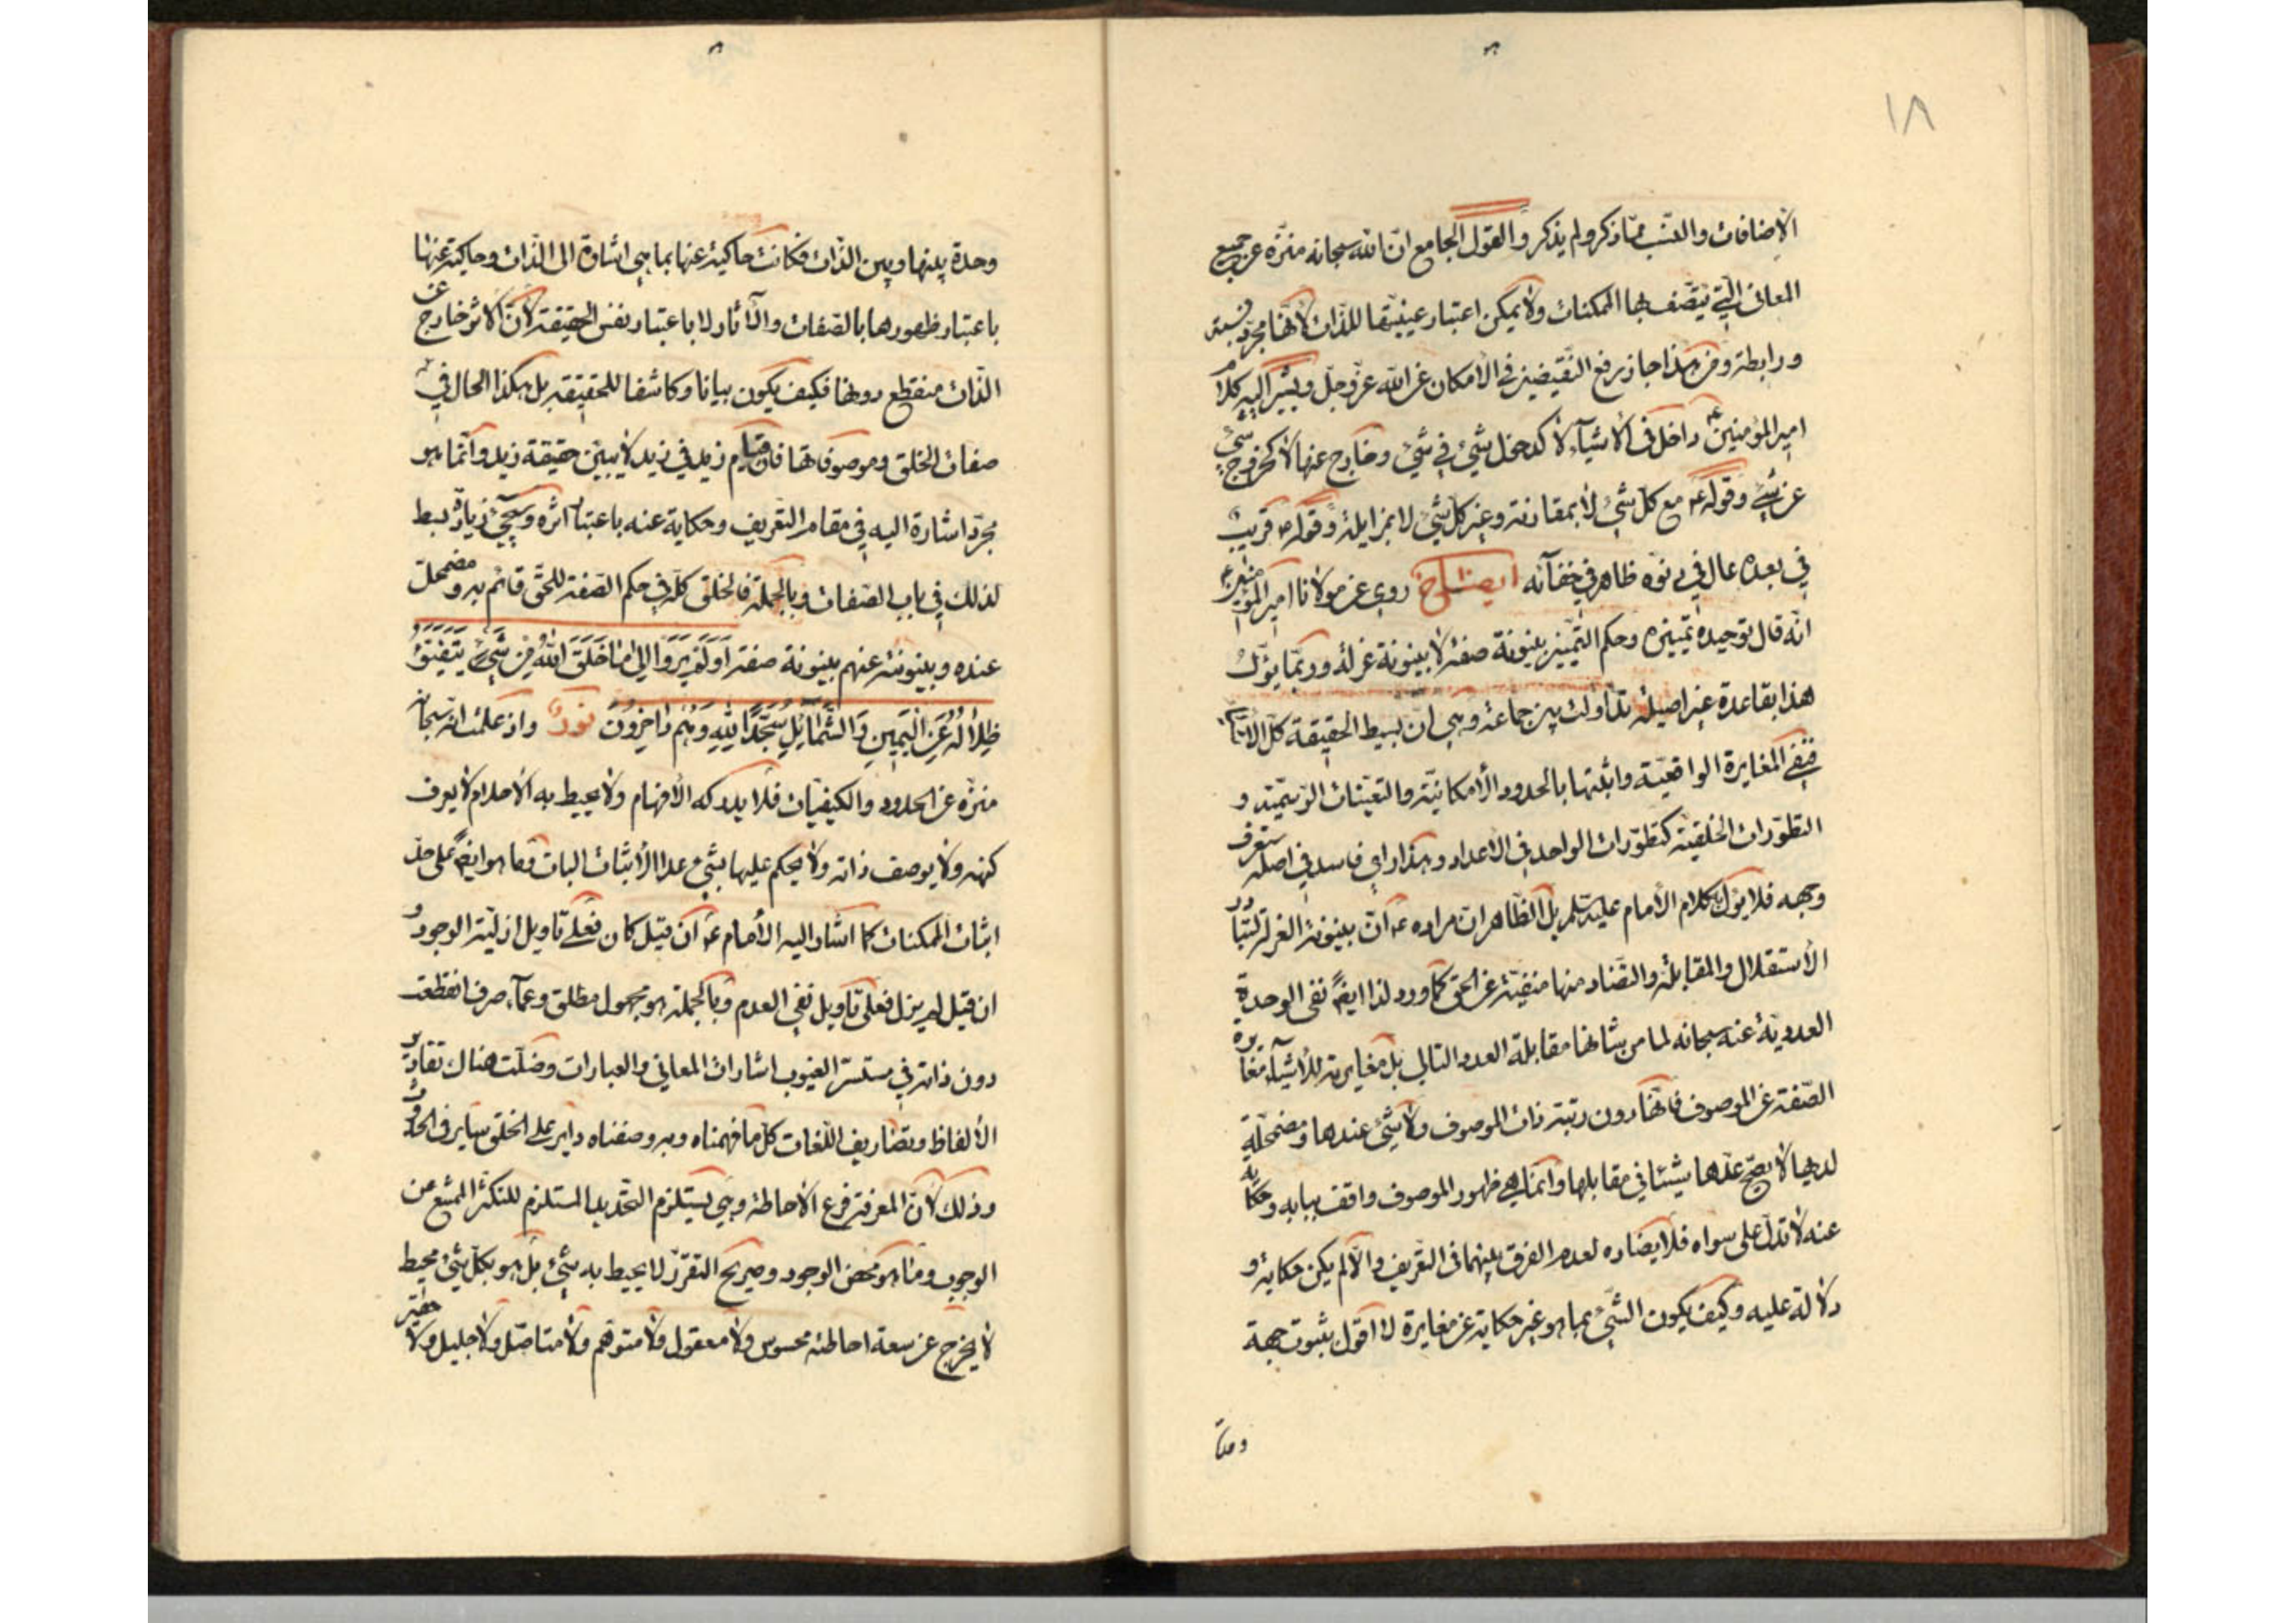 ١٨
الأضافات والنسب مما ذكر ولم يذكر والقول الجامع ان الله سبحانه منزّه عن جميع
المعاني التي يتّصف بها الممكنات ولا يمكن اعتبار عينيتها للذات لأنها مجرد نسبة
ورابطة ومن هذا جاز رفع النقيضين في الأمكان عن الله عزّ وجلّ ويشير اليه كلام
امير المؤمنين ع داخل في الأشياء لا كدخول شئ في شئ وخارج عنها لا كخروج شئ
عن شئ وقوله ع مع كل شئ لا بمقارنة وغير كل شئ لا بمزايلة وقوله ع قريب
في بعده عال في دنوّه ظاهر في خفآئه ايضاح روي عن مولانا امير المؤمنين ع
انّه قال توحيده تمييزه وحكم التّمييز بينونة صفة لا بينونة عزلة وربّما يؤل
هذا بقاعدة غير اصيلة تداولت بين جماعة وهي ان بسيط الحقيقة كلّ الأشياء
فنفي المغايرة الواقعيّة واثبتها بالحدود الأمكانيّة والتعيّنات الرسميّة و
التطوّرات الخلقيّة كتطوّرات الواحد في الأعداد وهذا راي فاسد في اصله ستعرف
وجهه فلا يؤل كلام الأمام عليه السلم بل الظاهر ان مراده ع انّ بينونة العزلة لتبادر
الأستقلال والمقابلة والتضاد منها منفيّة عن الحق كما ورد لذا ايضً نفي الوحدة
العددية عنه سبحانه لما من شانها مقابلة العدد التالي بل مغايرته للأشيآء مغايرة
الصّفة عن الموصوف فانّها دون رتبة ذات الموصوف ولا شئ عندها ومضمحلّة
لديها لا يصحّ عدّها شيئا في مقابلها وانّما هي ظهور الموصوف واقف ببابه وحكاية
عنه لا تدلّ على سواه فلا يضاده لعدم الفرق بينهما في التعريف والّا لم يكن حكاية و
دلالة عليه وكيف يكون الشئ بما هو غير حكاية عن مغايرة لا اقول بثبوت جهة
وحدة
وحدة بينها وبين الذّات فكانت حاكية عنها بما هي اشارة الى الذّات وحاكية عنها
باعتبار ظهورها بالصّفات والآثار لا باعتبار نفس الحقيقة لأنّ الأثر خارج عن
الذّات منقطع دونها فكيف يكون بيانا وكاشفا للحقيقة بل هكذا الحال في
صفات الخلق وموصوفاتها فان قيام زيد في زيد لا يبيّن حقيقة زيد وانّما هو
مجرّد اشارة اليه في مقام التعريف وحكاية عنه باعتبار اثره وسيجئ زيادة بسط
لذلك في باب الصّفات وبالجملة فالخلق كلّه في حكم الصّفة للحقّ قائم به ومضمحلّ
عنده وبينونته عنهم بينونة صفة اَوَلَمْ يَرَوْا اِلى ما خَلَقَ اللهُ مِنْ شَئٍ يَتَفَيَّؤُ
ظِلالُهُ عَنِ الْيَمينِ وَالشَّمآئِلِ سُجَّداً لِلّهِ وَهُمْ داخِرُونَ نور واذ علمت انه سبحانه
منزّه عن الحدود والكيفيّات فلا يدركه الأفهام ولا يحيط به الأحلام لا يعرف
كنهه ولا يوصف ذاته ولا يحكم عليها بشئ عدا الأثبات البات فما هو ايضً على حدّ
اثبات الممكنات كما اشار اليه الأمام ع ان قيل كان فعلى تأويل ازليّة الوجود و
ان قيل لم يزل فعلى تأويل نفي العدم وبالجملة هو مجهول مطلق وعمآء صرف انقطعت
دون ذاته في مستسرّ الغيوب اشارات المعاني والعبارات وضلّت هنالك تقادير
الألفاظ وتصاريف اللّغات كلّ ما فهمناه وبه وصفناه داير على الخلق ساير في الحدوث
وذلك لأن المعرفة فرع الأحاطة وهي يستلزم التّحديد المستلزم للتكثّر الممتنع عن
الوجوب ومن هو محض الوجود وصريح التقرّر لا يحيط به شئ بل هو بكل شئ محيط
لا يخرج عن سعة احاطته محسوس ولا معقول ولا متوهّم ولا متاصّل ولا جليل ولا حقير